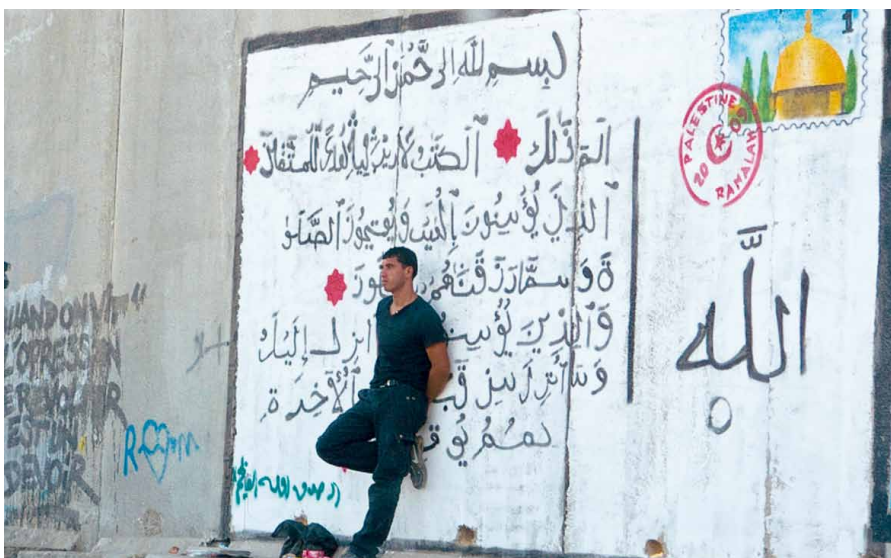 بسم لله الرحمن الرحيم
الم ذلك الكتب لا ريب فيه هدى للمتقين
الذين يؤمنون بالغيب ويقيمون الصلو
ة ومما رزقناهم
والذين يؤمنو انزل إليك
وما أنزل من قب الأخرة
هم يوق
صدق الله العظيم
1
PALESTINE
20 09
RAMALAH
الله
UAND ON VIT"
L'OPRESSION
EST UN
DEVOIR